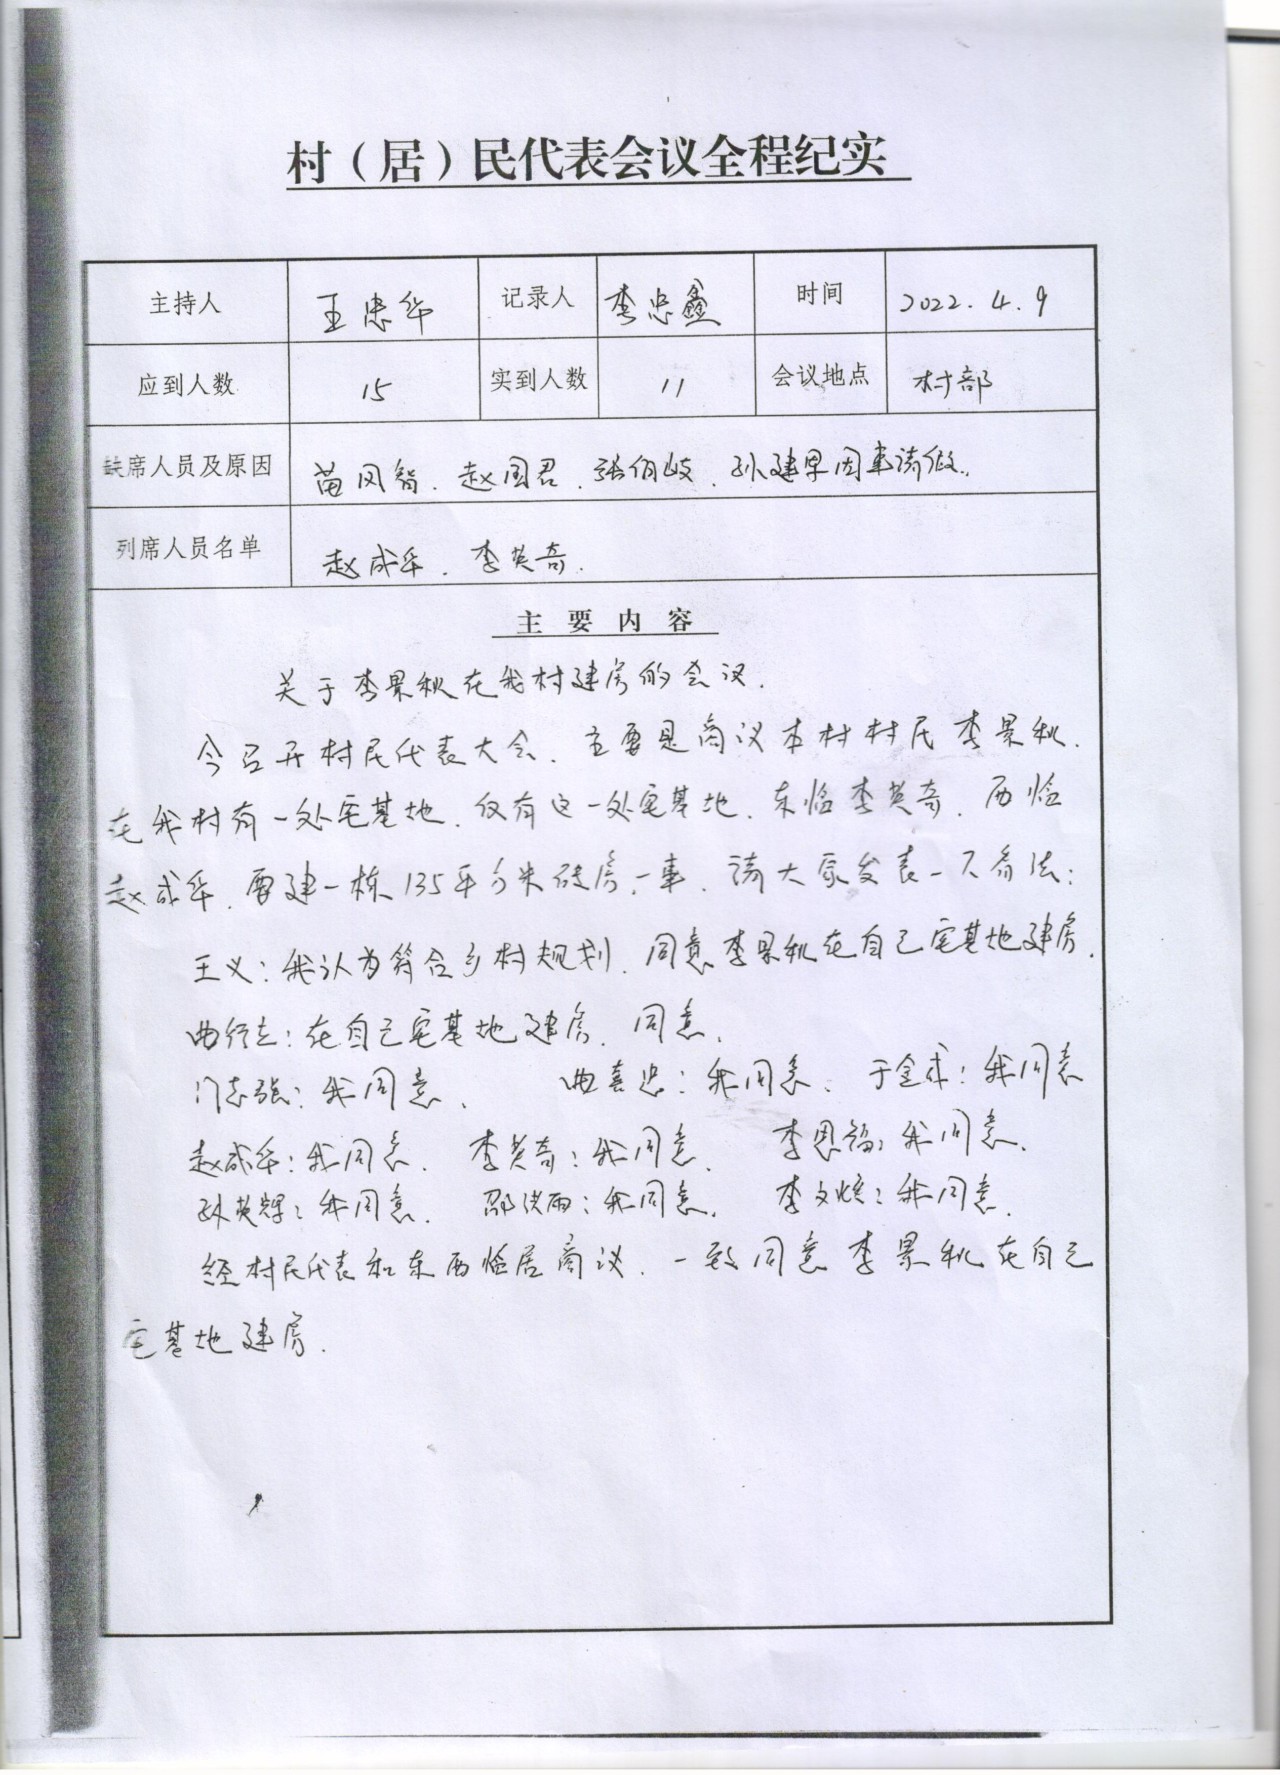 村（居）民代表会议全程纪实
主持人 王忠华 记录人 李忠鑫 时间 2022.4.9
应到人数 15 实到人数 11 会议地点 村部
缺席人员及原因 苗凤智、赵国君、张伯岐、孙建 因事请假。
列席人员名单 赵成华、李英奇.
主要内容
关于李景秋在我村建房的会议.
今召开村民代表大会、主要是商议本村村民李景秋、
在我村有一处宅基地、仅有这一处宅基地、东临李英奇、西临
赵成华、要建一栋135平方米砖房一事、请大家发表一下看法:
王义:我认为符合乡村规划、同意李景秋在自己宅基地建房.
曲行 :在自己宅基地建房、同意.
门志强:我同意、 曲喜忠:我同意、 于金 :我同意
赵成华:我同意、 李英奇:我同意、 李恩福:我同意、
孙英辉:我同意、 邵洪雨:我同意、 李文 :我同意、
经村民代表和东西临居商议、一致同意李景秋在自己
宅基地建房.